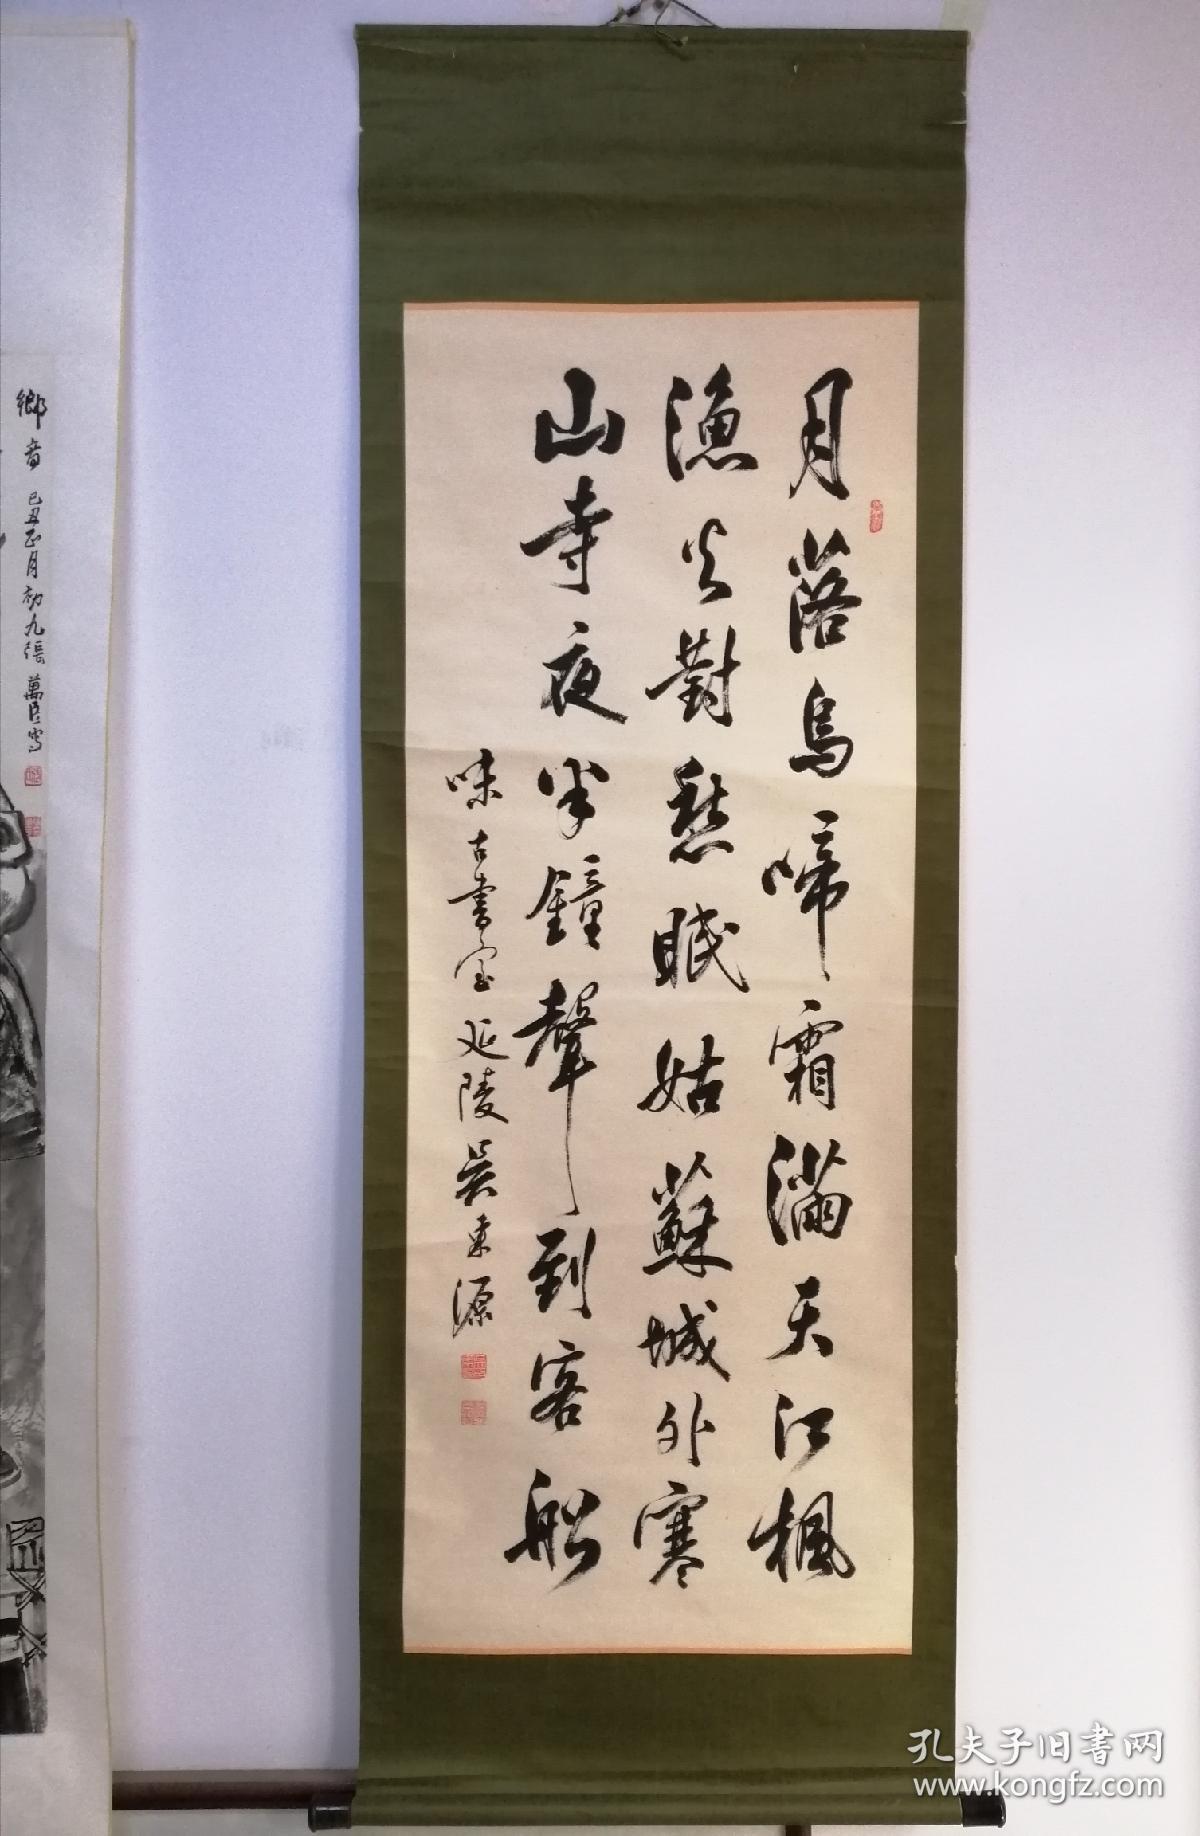 月落烏啼霜滿天江楓
漁火對愁眠姑蘇城外寒
山寺夜半鐘聲到客船
味古書室延陵吳東源
鄉音 己丑正月初九張萬臣寫
孔夫子旧書网
www.kongfz.com